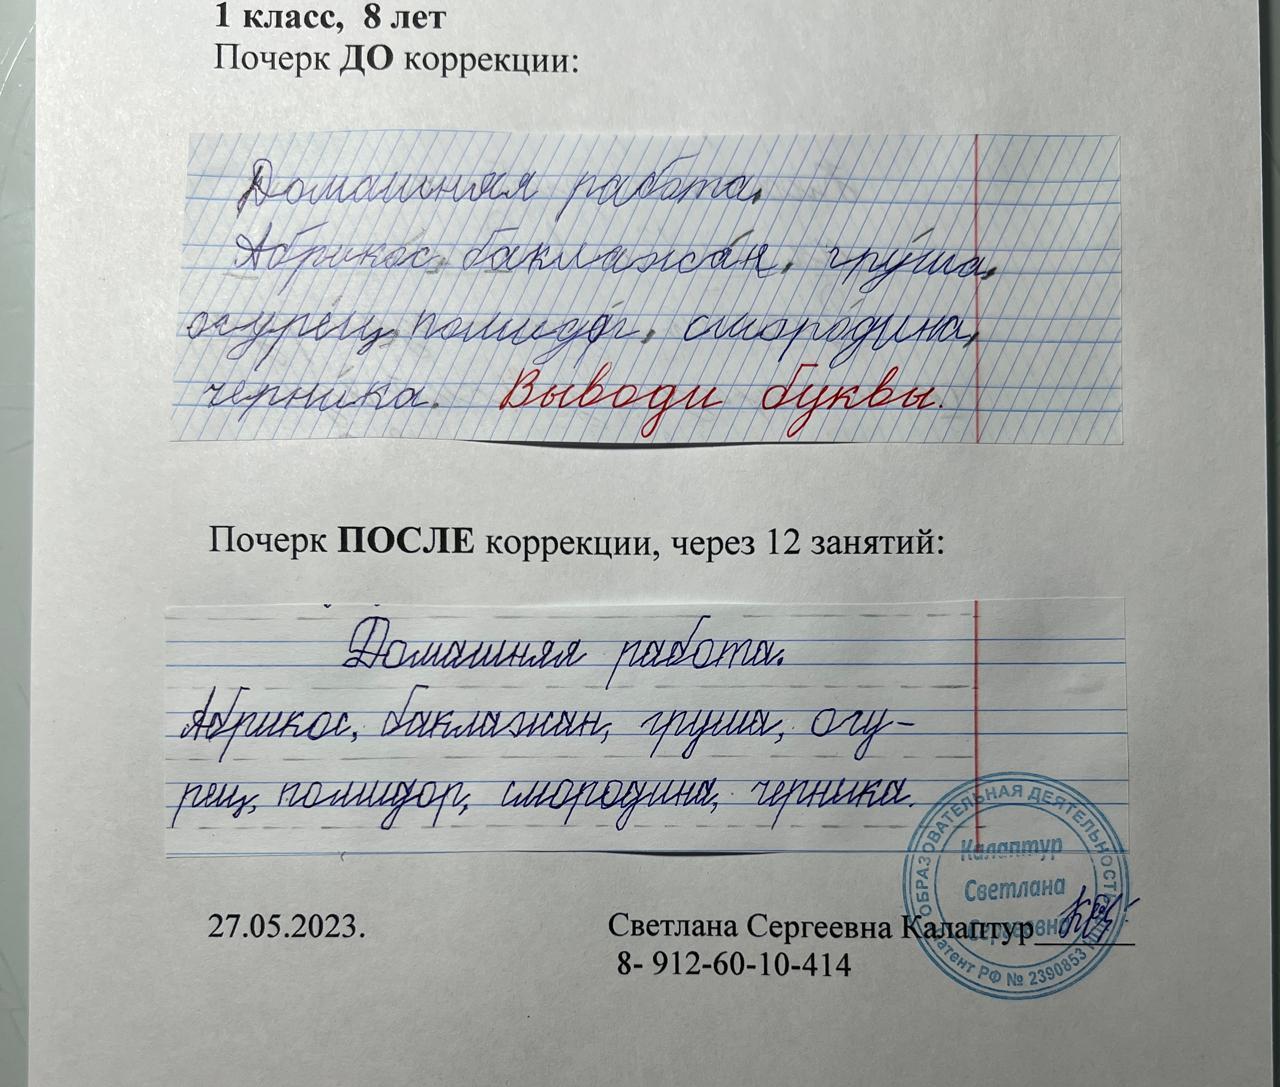 1 класс, 8 лет
Почерк ДО коррекции:
Домашняя работа.
Абрикос, баклажан, груша,
огурец, помидор, смородина,
черника. Выводи буквы.
Почерк ПОСЛЕ коррекции, через 12 занятий:
Домашняя работа.
Абрикос, баклажан, груша, огу-
рец, помидор, смородина, черника.
27.05.2023.
Светлана Сергеевна Калаптур
8- 912-60-10-414
ОБРАЗОВАТЕЛЬНАЯ ДЕЯТЕЛЬНОСТЬ
Калаптур
Светлана
Сергеевна
Патент РФ № 2390853